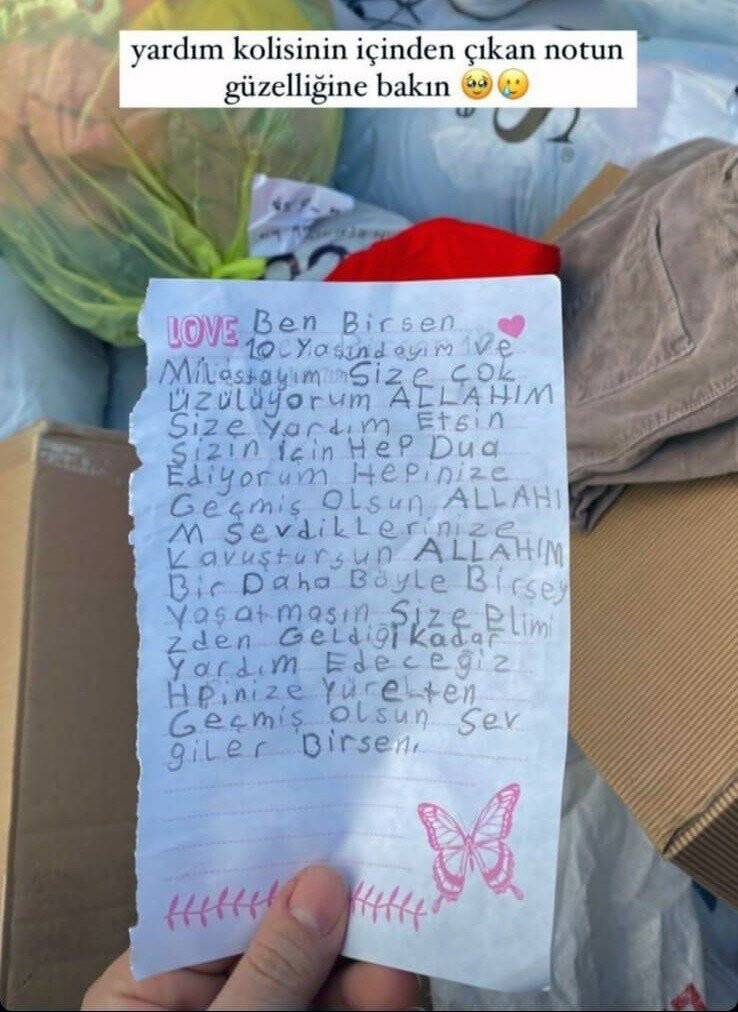 yardım kolisinin içinden çıkan notun
güzelliğine bakın 🥹🥲
LOVE Ben Birsen
10 Yaşındayım ve
Milastayım Size çok
üzülüyorum ALLAHIM
Size Yardım Etsin
Sizin için Hep Dua
Ediyorum Hepinize
Geçmiş Olsun ALLAHI
M Sevdiklerinize
Kavuştursun ALLAHIM
Bir Daha Böyle Birşey
Yaşatmasın Size Elimi
zden Geldiği Kadar
Yardım Edeceğiz
Hpinize Yürekten
Geçmiş Olsun Sev
giler Birsen.